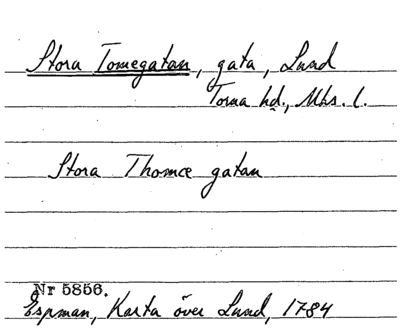 Stora Tomegatan, gata, Lund
Torna hd., Mhs. l.
Stora Thomce gatan
Nr 5856.
Espman, Karta över Lund, 1784